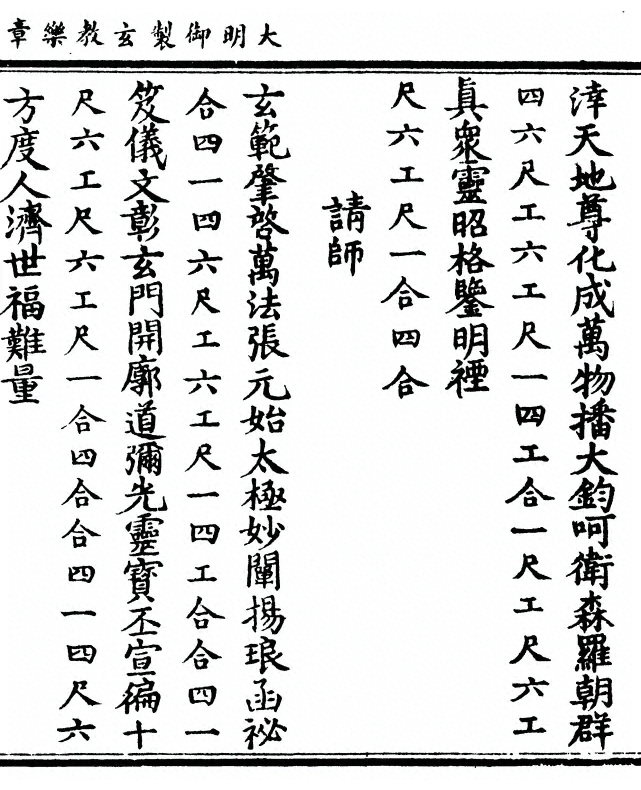 大明御製玄教樂章
滜天地尊化成萬物播大鈞呵衛森羅朝群
四六尺工六工尺一四工合一尺工尺六工
真衆靈昭格鑒明禋
尺六工尺一合四合
請師
玄範肇啓萬法張元始太極妙闡揚琅函祕
合四一四六尺工六工尺一四工合合四一
笈儀文彰玄門開廓道彌光靈寳丕宣徧十
尺六工尺六工尺一合四合合四一四尺六
方度人濟世福難量